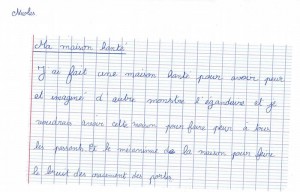 Ma maison hanté
J'ai fait une maison hanté pour avoir peur
et imaginé d'autre monstre légendaire et je
voudrais avoir cette maison pour faire peur à tous
les parents et le mécanisme de la maison pour faire
le bruit des des portes